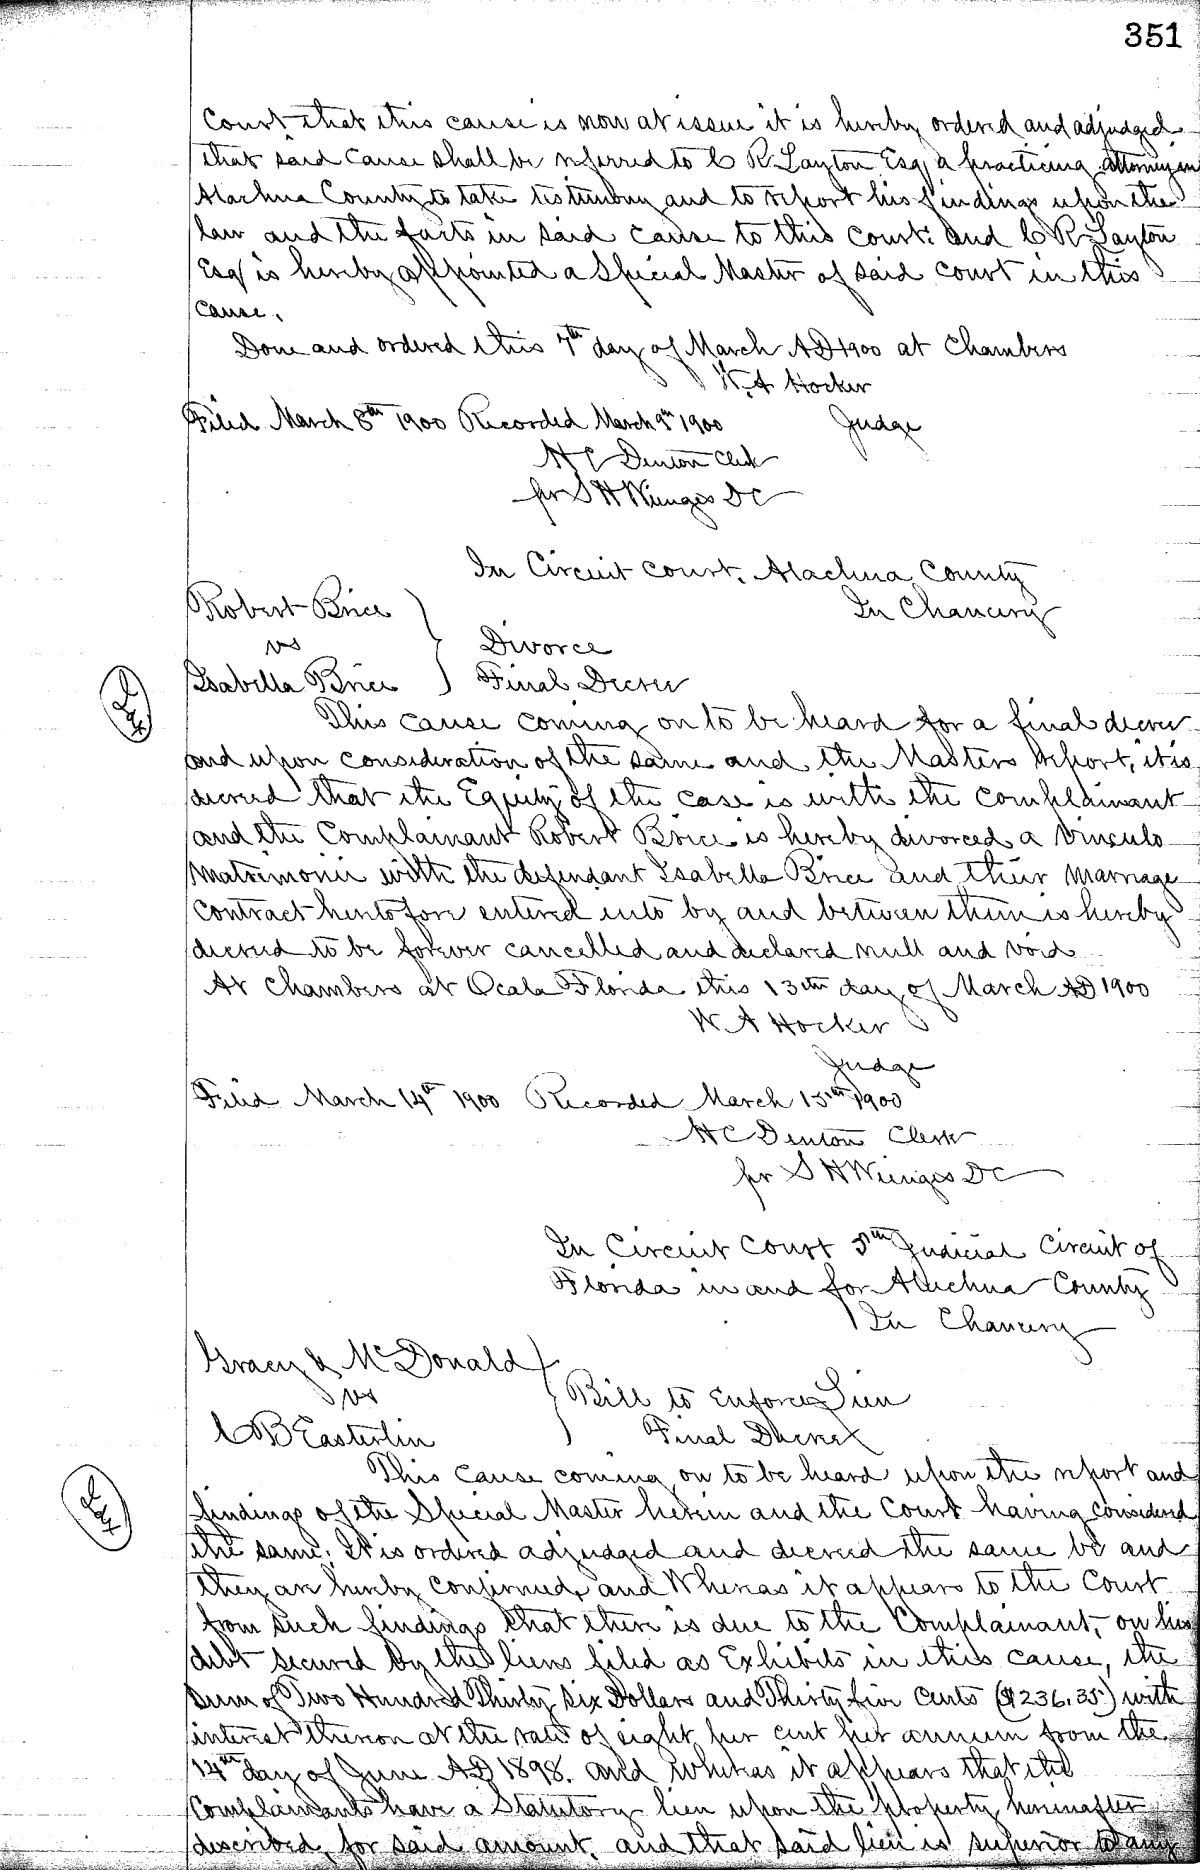 351
Court that this cause is now at issue it is hereby ordered and adjudged
that said cause shall be referred to C R Layton Esq a practicing attorney in
Alachua County to take testimony and to report his findings upon the
law and the facts in said cause to this court. And C R Layton
Esq is hereby appointed a Special Master of said court in this
cause.
Done and ordered this 7th day of March AD 1900 at Chambers
W. A Hocker
Judge
Filed March 8th 1900 Recorded March 9th 1900
H C Denton Clerk
per S H Wienges DC
In Circuit court, Alachua County
In Chancery
Robert Brice
vs
Isabella Brice
Divorce
Final Decree
This cause coming on to be heard for a final decree
and upon consideration of the same and the Masters report, it is
decreed that the Equity of the case is with the complainant
and the Complainant Robert Brice is hereby divorced a Vinculo
Matrimonii with the defendant Isabella Brice and their marriage
contract heretofore entered into by and between them is hereby
decreed to be forever cancelled and declared null and void
At Chambers at Ocala Florida this 13th day of March AD 1900
W A Hocker
Judge
Filed March 14th 1900 Recorded March 15th 1900
H C Denton Clerk
per S H Wienges DC
In Circuit Court 5th Judicial Circuit of
Florida in and for Aluchua County
In Chancery
Gracy & McDonald
vs
C B Easterlin
Bill to Enforce Lien
Final Decree
This cause coming on to be heard upon the report and
findings of the Special Master herein and the Court having considered
the same. It is ordered adjudged and decreed the same be and
they are hereby confirmed, and Whereas it appears to the Court
from such findings that there is due to the Complainant, on his
debt secured by the liens filed as Exhibits in this cause, the
sum of Two Hundred Thirty Six Dollars and Thirty five cents ($236.35) with
interest thereon at the rate of eight per cent per annum from the
14th day of June AD 1898. and whereas it appears that the
Complainants have a Statutory lien upon the property hereinafter
described, for said amount, and that said lien is superior to any